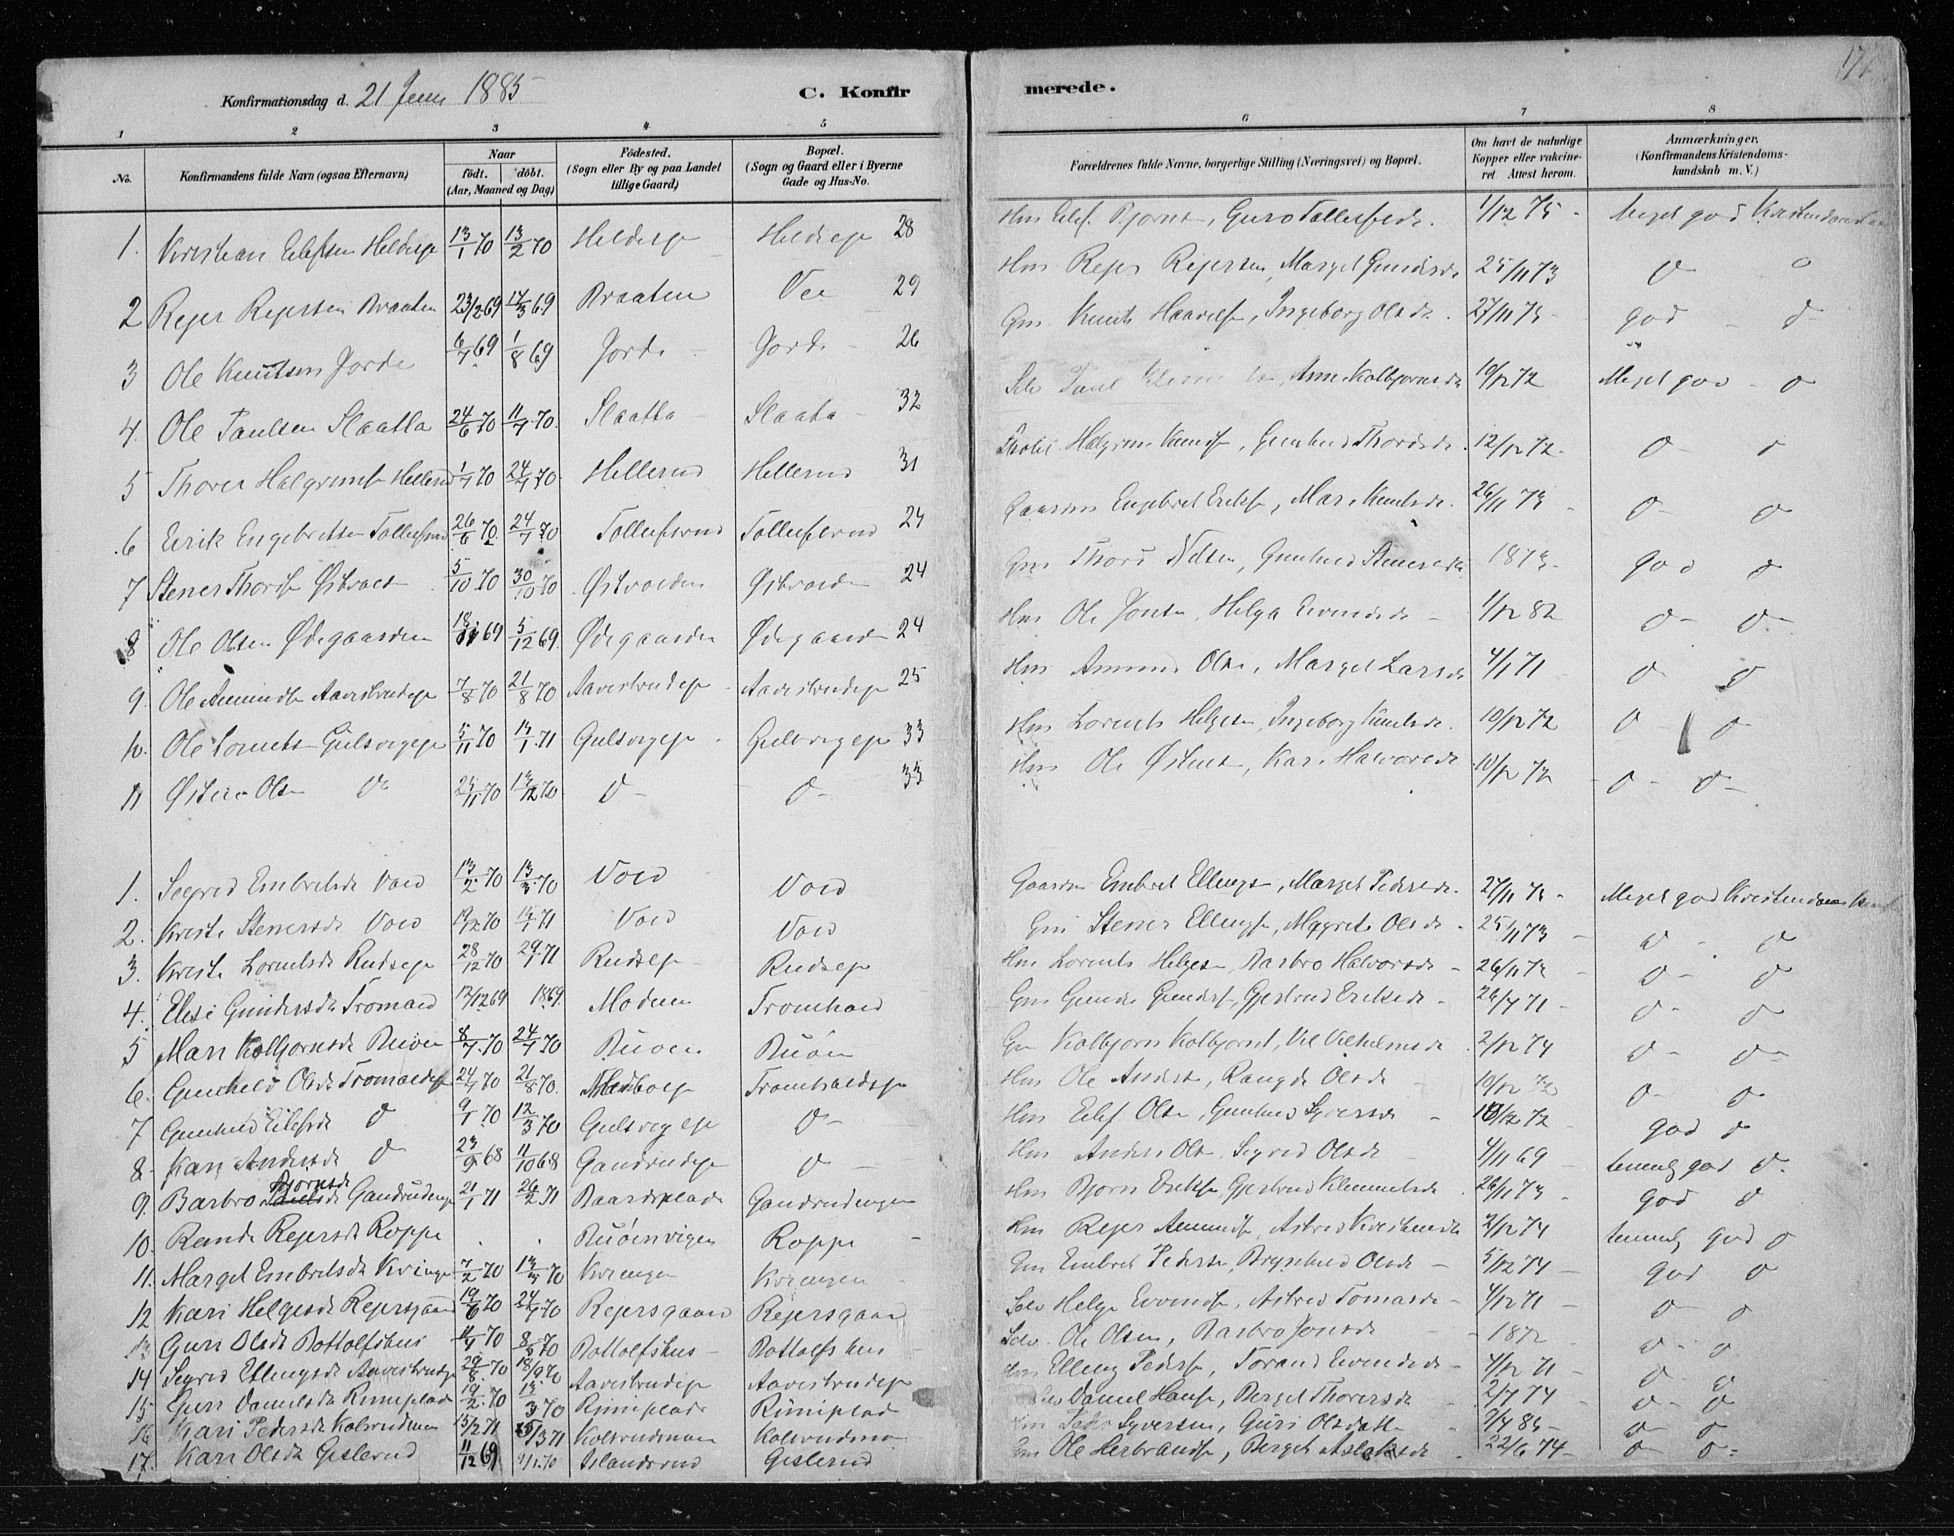 Konfirmationsdag d. 21 Juni 1885
C. Konfirmerede.
1 2 3 4 5 6 7 8
No.
Konfirmandens fulde Navn (ogsaa Efternavn)
Naar
födt. döbt.
(Aar, Maaned og Dag)
Födested.
(Sogn eller By og paa Landet
tillige Gaard)
Bopæl.
(Sogn og Gaard eller i Byerne
Gade og Hus-No.
Forældrenes fulde Navne, borgerlige Stilling (Næringsvei) og Bopæl.
Om havt de naturlige
Kopper eller vakcine-
ret. Attest herom.
Anmærkninger,
(Konfirmandens Kristendoms-
kundskab m. V.)
1. Kristian Eilefsen Heldeseje 13/1 70 13/2 70 Heldeseje Heldseje 28 Hm Eilef Bjørns, Guro Tollefsd. 1/12 75 Meget god Kristendomsk
2 Rejer Rejersen Braaten 23/2 69 14/3 69 Braaten Vee 29 Hm Rejer Rejersen, Marget Gundersd 25/11 73
3 Ole Knutsen Jorde 6/7 69 1/8 69 Jorde Jorde 26 Gm. Knut Haavels, Ingeborg Olsd. 27/11 73 god
4. Ole Paulsen Slaatta 24/6 70 11/7 70. Slaatta Slaata 32 Selv Paul, Anne Kolbjørnsd 10/12 72 Meget god
5 Thorer Halgrims Hellerud 1/7 70 24/7 70 Hellerud Hellerud 31 Halgrim Knuds, Gunhild Thordsd. 12/12 72
6 Eirik Engebretsen Tollefsrud 26/6 70 24/7 70 Tollefsrud Tollefsrud 24 Gaardm Engebret Eriks, Mari Knutsd. 26/11 73
7 Stener Thords Østvold 5/10 70 30/10 70 Østvolden Østvold 24 Gm Thord Nilsen, Gunhild Stenersd. 1873 god
8 Ole Olsen Ødegaarden 18/11 69 5/12 69 Ødegaarden Ødegaard 24 Hm Ole Jonsen, Helga Eivindsd 1/12 82
9. Ole Amunds Aavestrudeje 7/8 70 21/8 70 Aavestrudeje Aavestrudeje 25 Hm Amund Olsen, Marget Larsd 4/1 71
10. Ole Lornts Gulsvigeje 5/11 70 13/1 71 Gulsvigeje Gulsvigeje 33 Hm Lornts Helgesen, Ingeborg Knutsd. 10/12 72
11 Østen Olsen 33 Hm Ole Østens, Kari Halvorsd 10/12 72
1. Segrid Embretsd Vold 13/2 70 13/3 70 Vold Vold Gaardm Embret Ellings, Marget Pedersd. 27/11 73 Meget god Kristendoms
2. Kristi Stenersd Vold Vold Vold Gm Stener Ellings, Margret Olsd 25/11 73
3. Kristi Lorntsd Rudseje 28/12 70 29/1 71 Rudseje Rudseje Hm Lornts Helges, Barbro Halvorsd 26/11 73
4. Elisi Gundersd Tromald 12/12 69 1869. Modum Tromhold Gm Gunder Gunders, Gjertrud Eriksd 26/7 71
5 Mari Kolbjørnsd Ruøen 8/7 70 24/7 70 Ruøen Ruøen Gm Kolbjørn Kolbjørns, Vil Vilhelmsd 2/12 74
6. Gunhild Olsd Tromaldeje 24/7 70 21/8 70. Tromholdseje Hm Ole Anders, Rangdi Olsd 10/12 72
7 Gunhild Eilefsd 9/1 70 12/3 70 Gulsvigeje Hm Eilef Olsen, Gunhild Syversd 10/12 72 god
8. Kari Andersd 23/9 68 11/10 68 Gandrudeje Hm Anders Ols, Segrid Olsd 4/11 69 temmelig god
9. Barbro Bjørnsd Gandrudenge 21/1 71 26/2 71 Baardsplads Gandrudengen Hm Bjørn Eriks, Gjertrud Klemmetsd 26/11 73 god
10. Randi Rejersd Roppe Ruøenvigen Roppe Hm Rejer Amunds, Astrid Kristensd 2/12 74 temmelig god
11. Marget Embretsd Kvinge 7/2 70 13/3 70 Kvingen Kvingen Gm Embret Peders, Brynhild Olsd 5/12 74 god
12 Kari Helgesd Rejersgaard 19/6 70 24/7 70 Rejersgaard Rejersgaard Selv Helge Eivinds, Astrid Tomasd 4/12 71
13 Guri Olsd Bottolfshus 11/4 70 8/5 70 Bottolfshus Bottolfshus Selv. Ole Olsen, Barbro Jonsd 1872
14 Segrid Ellingsd Aavestrudeje 29/8 70 18/9 70 Aavestrudeje Aavestrudeje Hm Elling Peders, Torand Eivindsd 4/12 71
15 Guri Danielsd Rimeplads 19/2 70 13/3 70 Rimeplads Rimeplad Daniel Hans, Berget Thorersd 2/7 74
16 Kari Pedersd Kolsrudmoen 15/2 71 Kolsrudmoen Kolsrudmo Peder Syversen, Guri Olsdatt
17. Kari Olsd Gislerud 11/12 69 Islandsrud Gislerud Gm Ole Herbrands, Berget Aslaksd 22/6 74